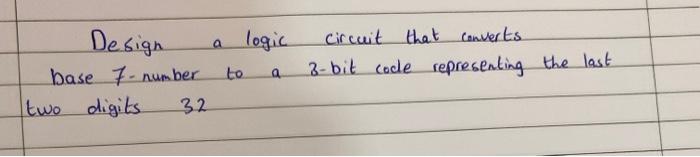 Design a logic circuit that converts
base 7-number to a 3-bit code representing the last
two digits 32